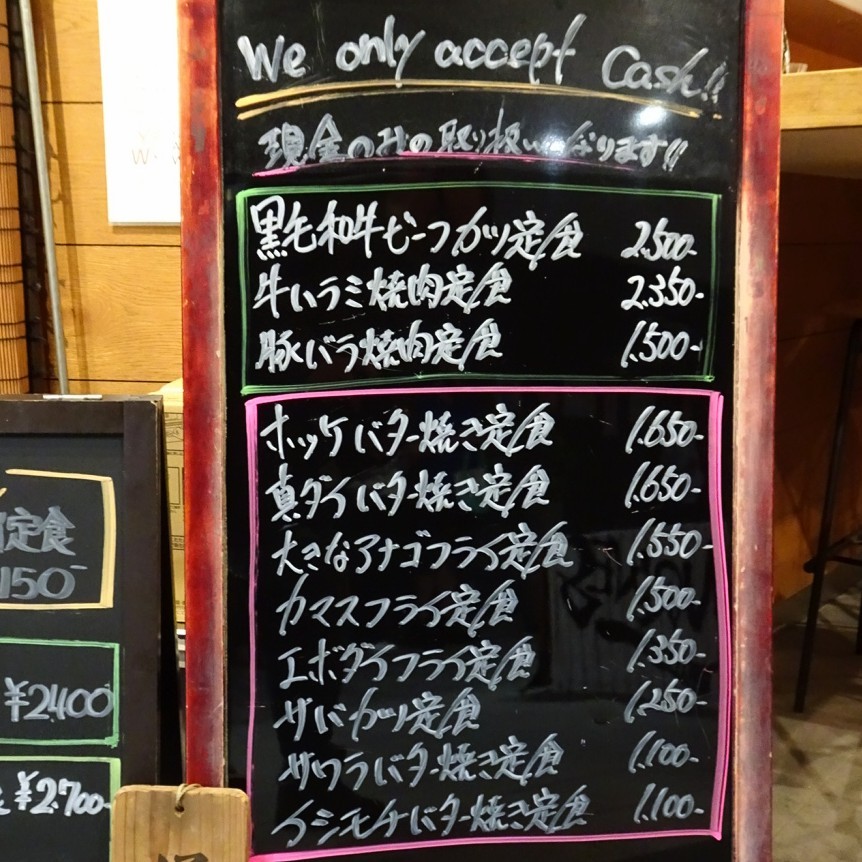 We only accept Cash!!
現金のみの取り扱いになります!!
黒毛和牛ビーフカツ定食 2,500-
牛ハラミ焼肉定食 2,350-
豚バラ焼肉定食 1,500-
ホッケバター焼き定食 1,650-
真ダイバター焼き定食 1,650-
大きなアナゴフライ定食 1,550-
カマスフライ定食 1,500-
エボダイフライ定食 1,350-
サバカツ定食 1,250-
サワラバター焼き定食 1,100-
イシモチバター焼き定食 1,100-
定食
150-
¥2400
¥2,700-